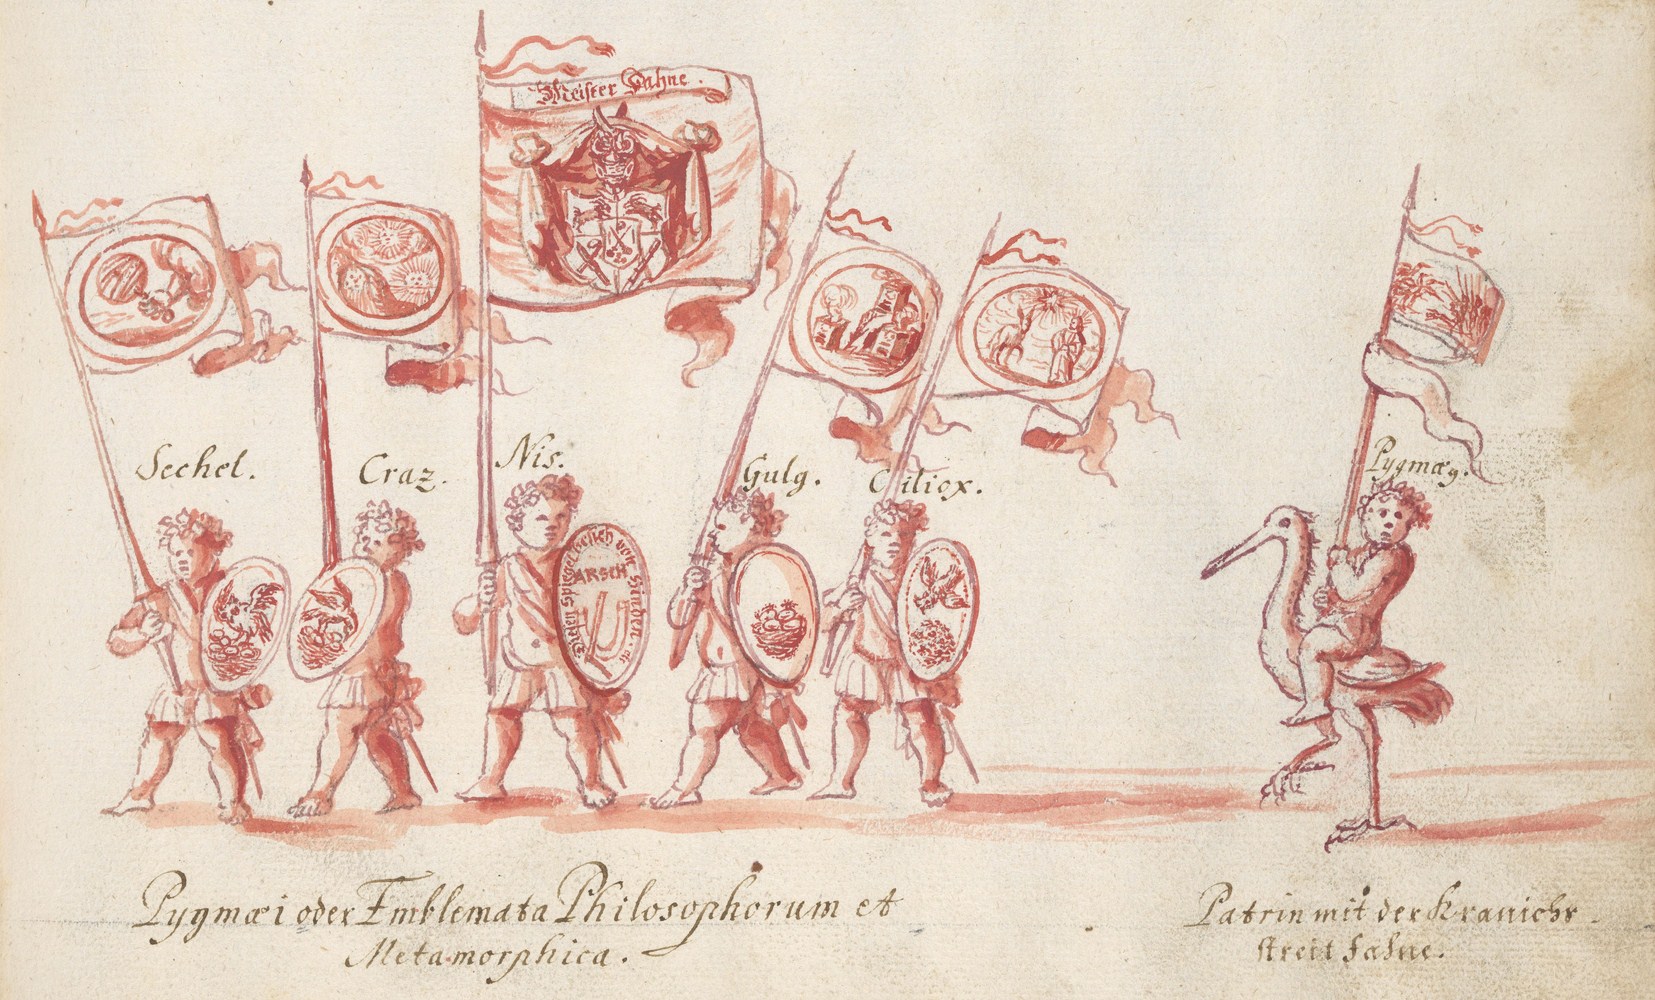 Meister Fahne.
Sechel.
Craz.
Nis.
Gulg.
Ciliox.
Pygmæg.
Diesen Spiegel besich von hinden
ARSCH
Pygmæi oder Emblemata Philosophorum et
Metamorphica.
Patrin mit der Kranichs
streit fahne.